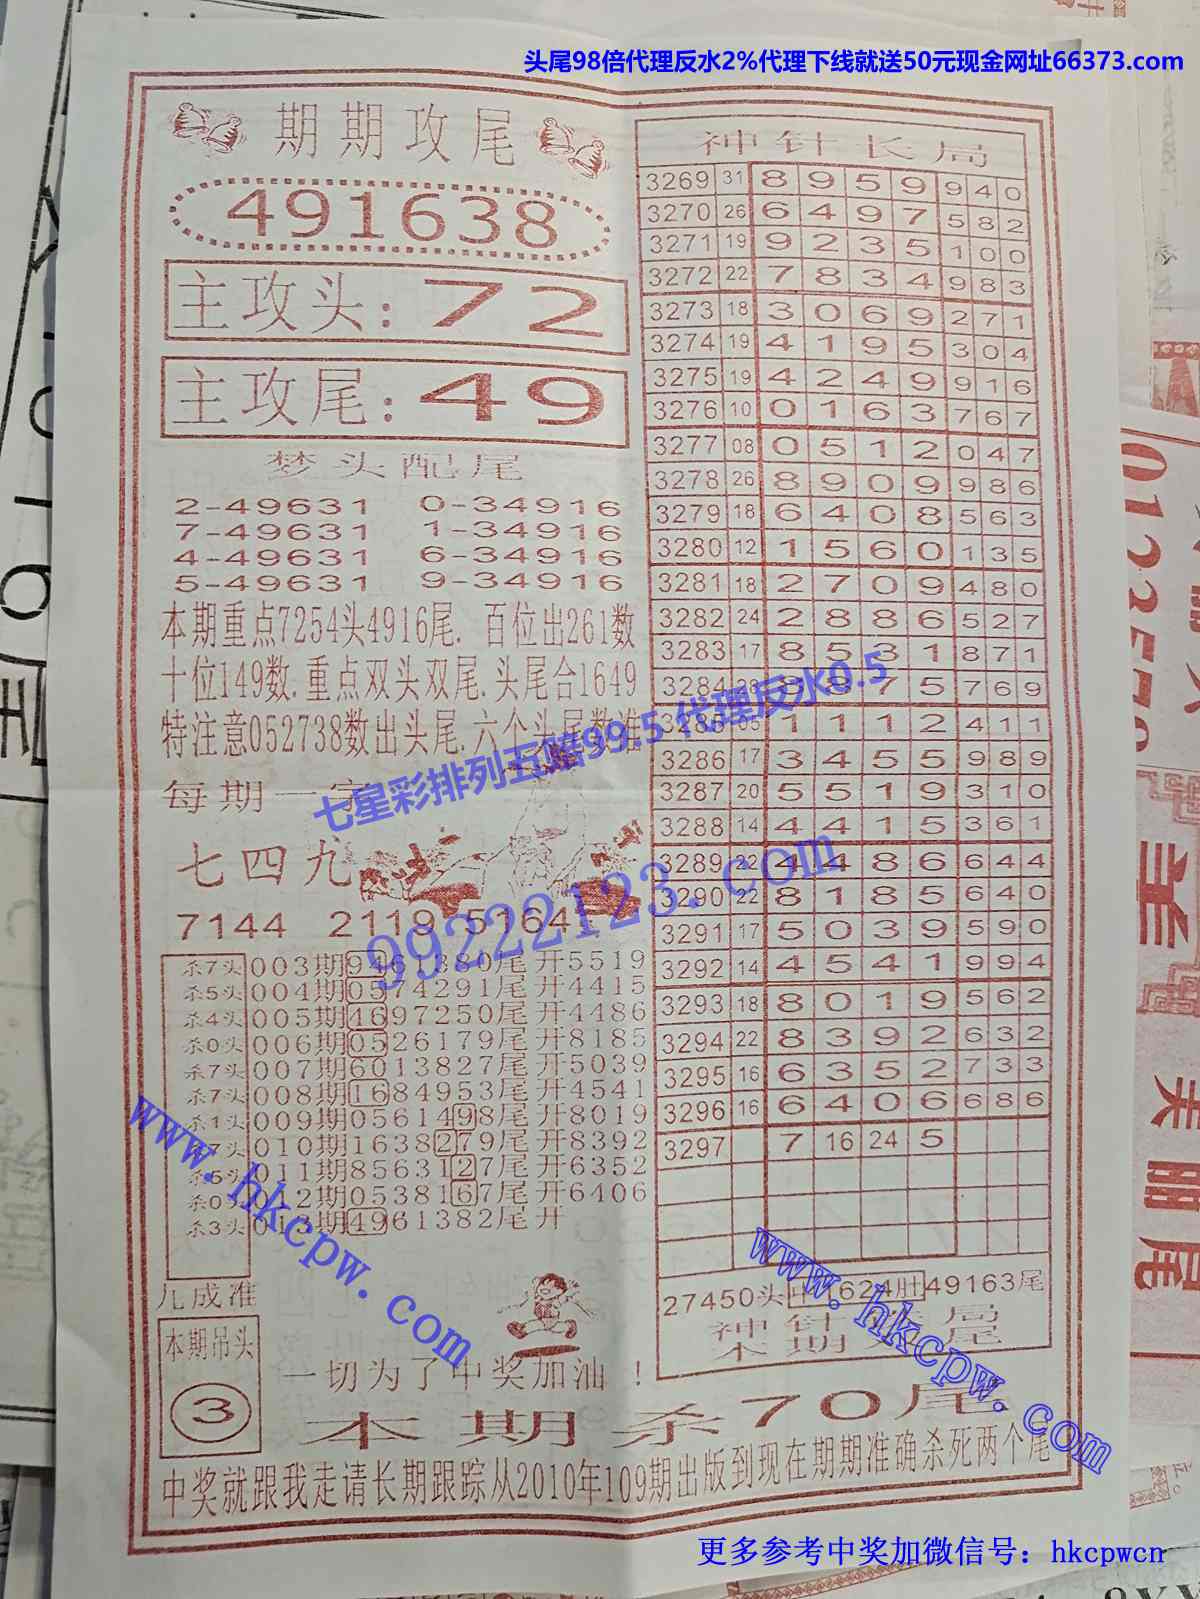 头尾98倍代理反水2%代理下线就送50元现金网址66373.com
期期攻尾
491638
主攻头:72
主攻尾:49
梦头配尾
2-49631 0-34916
7-49631 1-34916
4-49631 6-34916
5-49631 9-34916
本期重点7254头4916尾. 百位出261数
十位149数.重点双头双尾.头尾合1649
特注意052738数出头尾.六个头尾数准
每期一字
七四九
7144 2119 5164
杀7头 003期9461380尾开5519
杀5头 004期0574291尾开4415
杀4头 005期4697250尾开4486
杀0头 006期0526179尾开8185
杀7头 007期6013827尾开5039
杀7头 008期1684953尾开4541
杀1头 009期0561498尾开8019
杀7头 010期1638279尾开8392
杀5头 011期8563127尾开6352
杀0头 012期0538167尾开6406
杀3头 013期4961382尾开
九成准
本期吊头
3
一切为了中奖加油!
神针长局
3269 31 8 9 5 9 9 4 0
3270 26 6 4 9 7 5 8 2
3271 19 9 2 3 5 1 0 0
3272 22 7 8 3 4 9 8 3
3273 18 3 0 6 9 2 7 1
3274 19 4 1 9 5 3 0 4
3275 19 4 2 4 9 9 1 6
3276 10 0 1 6 3 7 6 7
3277 08 0 5 1 2 0 4 7
3278 26 8 9 0 9 9 8 6
3279 18 6 4 0 8 5 6 3
3280 12 1 5 6 0 1 3 5
3281 18 2 7 0 9 4 8 0
3282 24 2 8 8 6 5 2 7
3283 17 8 5 3 1 8 7 1
3284 28 8 8 7 5 7 6 9
3285 05 1 1 1 2 4 1 1
3286 17 3 4 5 5 9 8 9
3287 20 5 5 1 9 3 1 0
3288 14 4 4 1 5 3 6 1
3289 22 4 4 8 6 6 4 4
3290 22 8 1 8 5 6 4 0
3291 17 5 0 3 9 5 9 0
3292 14 4 5 4 1 9 9 4
3293 18 8 0 1 9 5 6 2
3294 22 8 3 9 2 6 3 2
3295 16 6 3 5 2 7 3 3
3296 16 6 4 0 6 6 8 6
3297 7 16 24 5
27450头中1624肚49163尾
神针长局
本期 尾
本期杀70尾
中奖就跟我走请长期跟踪从2010年109期出版到现在期期准确杀死两个尾
七星彩排列五赔99.5 代理反水0.5
99222123.com
www.hkcpw.com
www.hkcpw.com
更多参考中奖加微信号：hkcpwcn
美丽尾